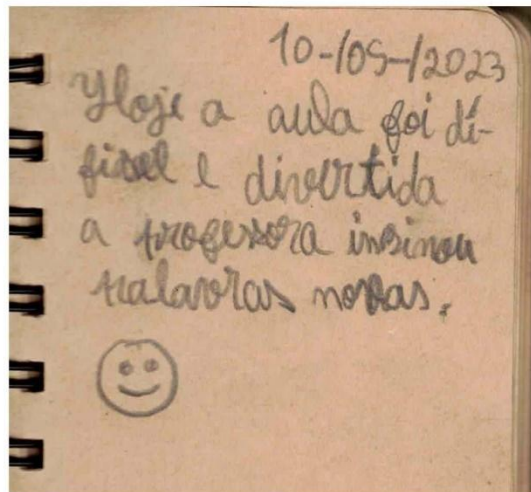 10-/05-/2023
Hoje a aula foi di-
ficel e divertida
a professora insinou
palavras novas.